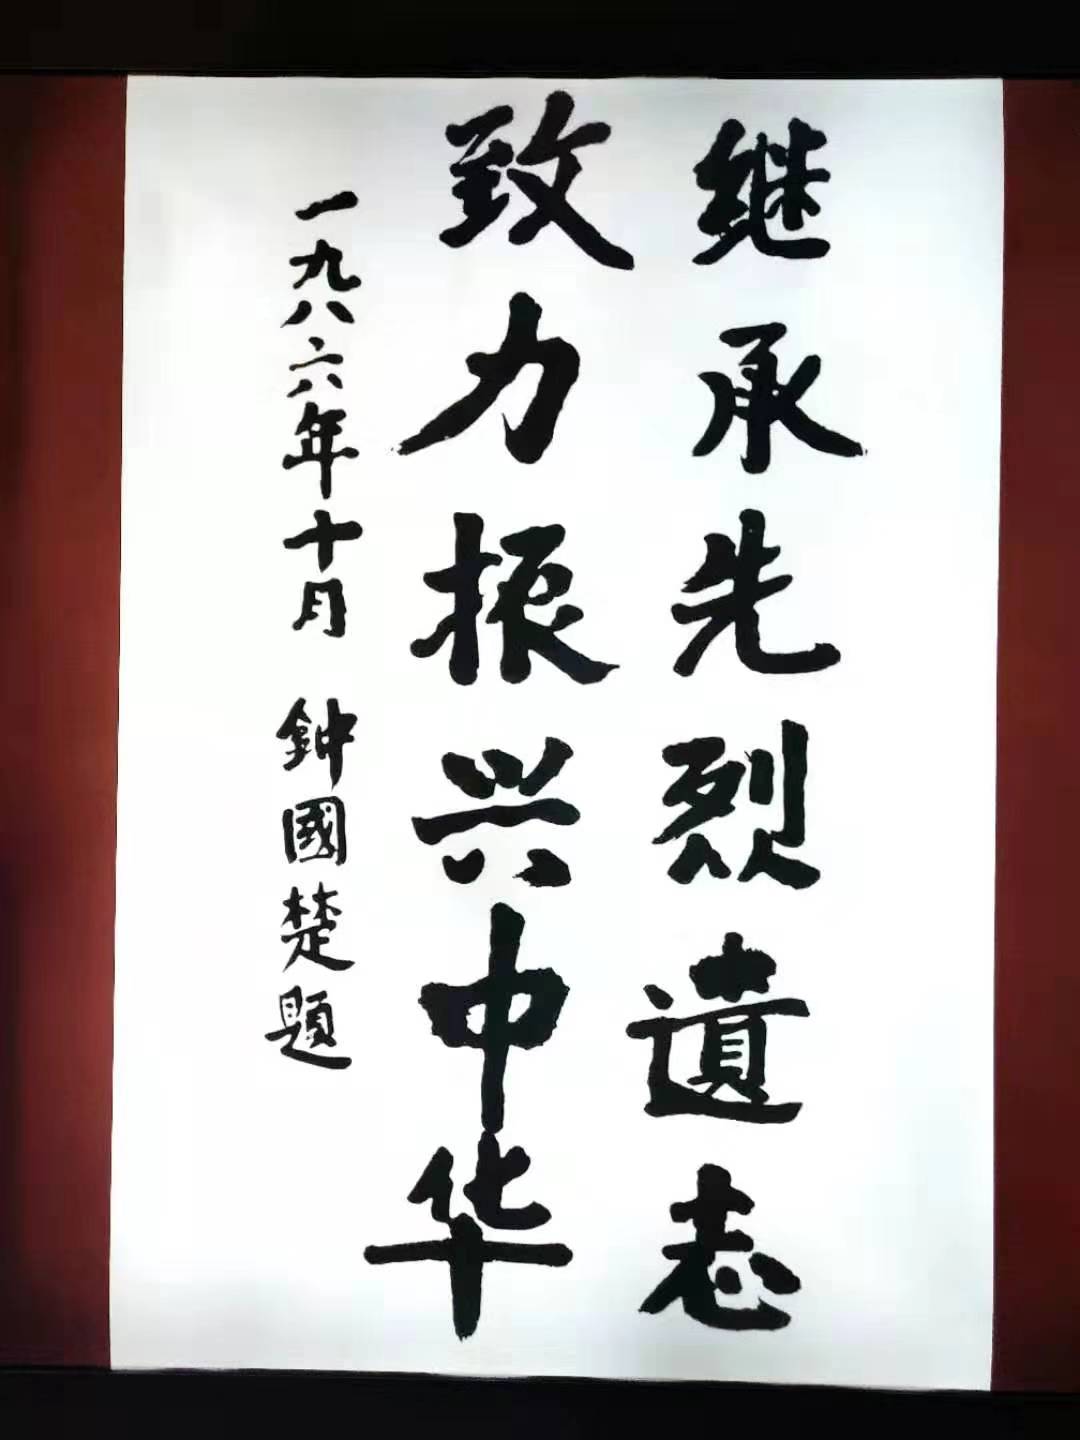 继承先烈遺志
致力振兴中华
一九八六年十月 鈡國楚題